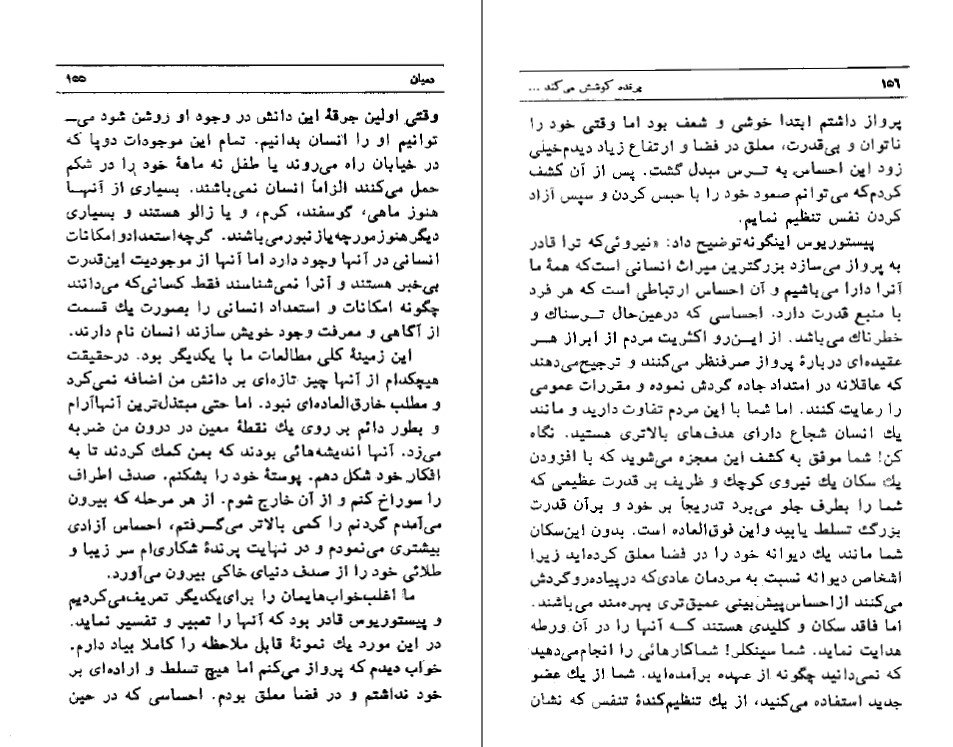 دمیان ۱۵۵
وقتی اولین جرقهٔ این دانش در وجود او روشن شود می‌ـ
توانیم او را انسان بدانیم. تمام این موجودات دوپا که
در خیابان راه می‌روند یا طفل نه ماههٔ خود را در شکم
حمل می‌کنند الزاماً انسان نمی‌باشند. بسیاری از آنهـا
هنوز ماهی، گوسفند، کرم، و یا زالو هستند و بسیاری
دیگر هنوز مورچه یا زنبور می‌باشند. گرچه استعداد و امکانات
انسانی در آنها وجود دارد اما آنها از موجودیت این قدرت
بی‌خبر هستند و آنرا نمی‌شناسند فقط کسانی‌که می‌دانند
چگونه امکانات و استعداد انسانی را بصورت یك قسمت
از آگاهی و معرفت وجود خویش سازند انسان نام دارند.
این زمینهٔ کلی مطالعات ما با یکدیگر بود. درحقیقت
هیچکدام از آنها چیز تازه‌ای بر دانش من اضافه نمی‌کرد
و مطلب خارق‌العاده‌ای نبود. اما حتی مبتذل‌ترین آنها آرام
و بطور دائم بر روی یك نقطهٔ معین در درون من ضربه
می‌زد. آنها اندیشه‌هائی بودند که بمن کمك کردند تا به
افکار خود شکل دهم. پوستهٔ خود را بشکنم. صدف اطراف
را سوراخ کنم و از آن خارج شوم. از هر مرحله که بیرون
می‌آمدم گردنم را کمی بالاتر می‌گـرفتم، احساس آزادی
بیشتری می‌نمودم و در نهایت پرندهٔ شکاری‌ام سر زیبا و
طلائی خود را از صدف دنیای خاکی بیرون می‌آورد.
ما اغلب‌خواب‌هایمان را برای‌یکدیگر تعریف‌می‌کردیم
و پیستوریوس قادر بود که آنها را تعبیر و تفسیر نماید.
در این مورد یك نمونهٔ قابل ملاحظه را کاملا بیاد دارم.
خواب دیدم که پرواز می‌کنم اما هیچ تسلط و اراده‌ای بر
خود نداشتم و در فضا معلق بودم. احساسی که در حین
۱۵۶ پرنده کوشش می‌کند ...
پرواز داشتم ابتدا خوشی و شعف بود اما وقتی خود را
ناتوان و بی‌قدرت، معلق در فضا و ارتفاع زیاد دیدم‌خیلی
زود این احساس به تـرس مبدل گشت. پس از آن کشف
کردم‌که می‌توانم صعود خود را با حبس کردن و سپس آزاد
کردن نفس تنظیم نمایم.
پیستوریوس اینگونه‌توضیح داد: «نیروئی‌که ترا قادر
به پرواز می‌سازد بزرگترین میراث انسانی است‌که همهٔ ما
آنرا دارا می‌باشیم و آن احساس ارتباطی است که هر فرد
با منبع قدرت دارد. احساسی که درعین‌حال تـرسناك و
خطرناك می‌باشد. از ایـن‌رو اکثریت مردم از ابراز هـر
عقیده‌ای دربارهٔ پرواز صرفنظر می‌کنند و ترجیح‌می‌دهند
که عاقلانه در امتداد جاده گردش نموده و مقررات عمومی
را رعایت کنند. اما شما با این مردم تفاوت دارید و مانند
یك انسان شجاع دارای هدف‌های بالاتری هستید. نگاه
کن! شما موفق به کشف این معجزه می‌شوید که با افزودن
یك سکان یك نیروی کوچك و ظریف بر قدرت عظیمی که
شما را بطرف جلو می‌برد تدریجاً بر خود و برآن قدرت
بزرگ تسلط یابید و این فوق‌العاده است. بدون این‌سکان
شما مانند یك دیوانه خود را در فضا معلق کرده‌اید زیرا
اشخاص دیوانه نسبت به مردمان عادی‌که درپیاده‌روگردش
می‌کنند ازاحساس پیش‌بینی عمیق‌تری بهره‌مند می‌باشند.
اما فاقد سکان و کلیدی هستند کـه آنها را در آن ورطه
هدایت نماید. شما سینکلر! شماکارهائی را انجام‌می‌دهید
که نمی‌دانید چگونه از عهده برآمده‌اید. شما از یك عضو
جدید استفاده می‌کنید، از یك تنظیم‌کنندهٔ تنفس که نشان